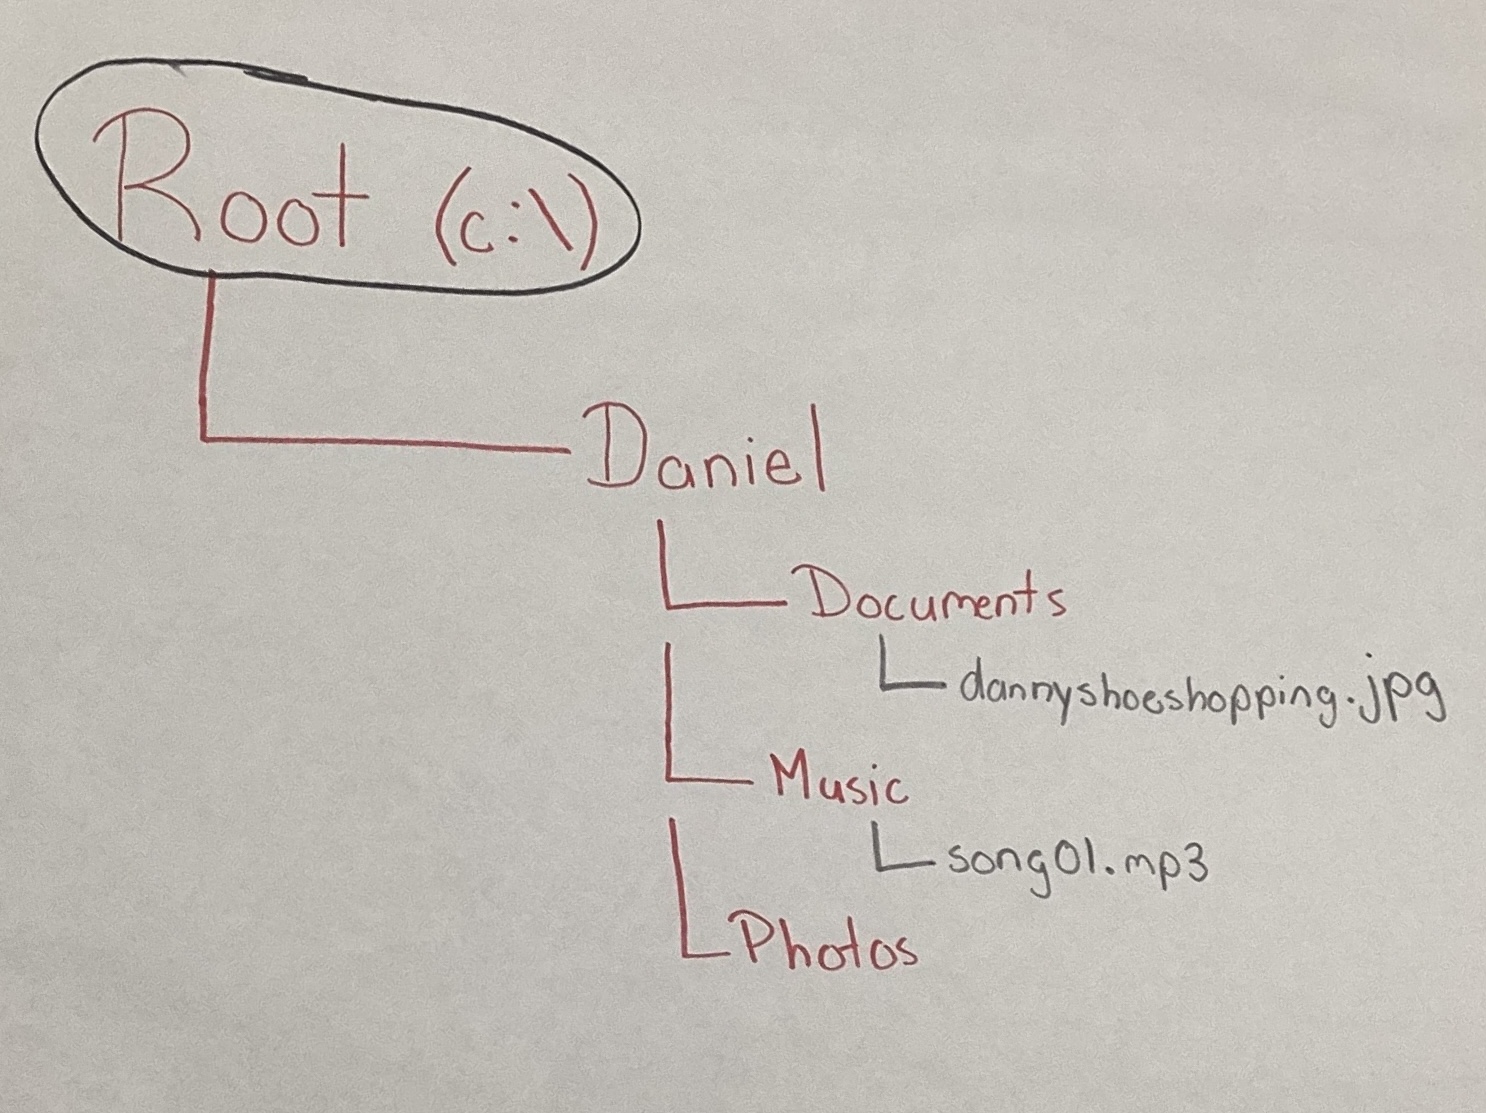 Root (c:\)
Daniel
Documents
dannyshoeshopping.jpg
Music
song01.mp3
Photos